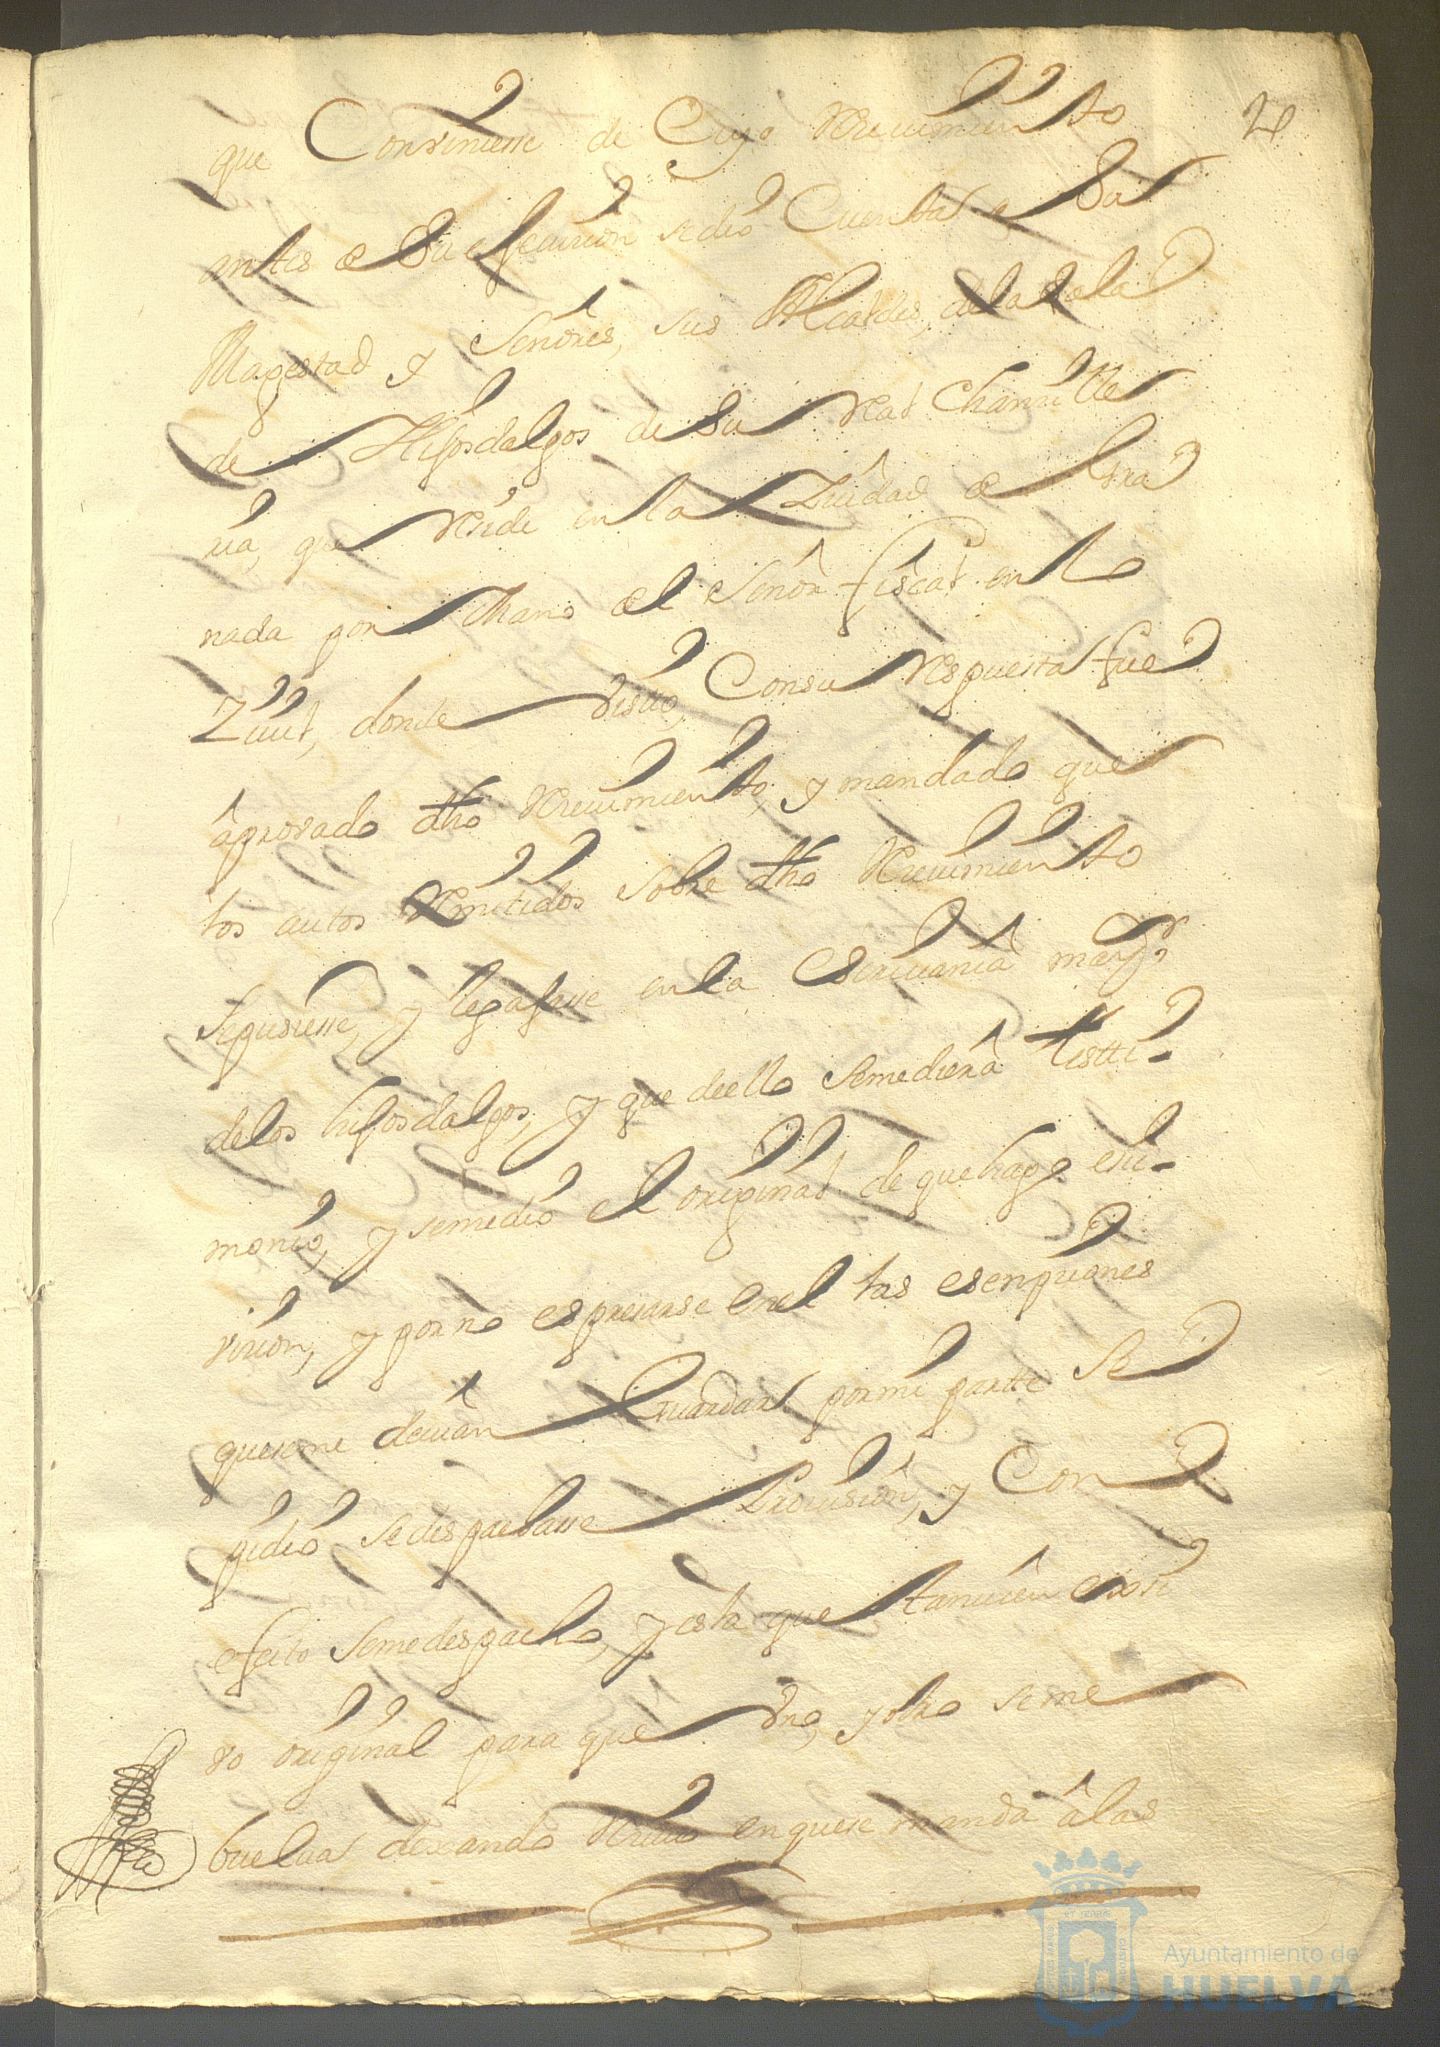 2
que Conviniesse de Cuyo Reciuimiento
antes de Su essecuzion sedio Cuenta a Su
Magestad y Señores, sus Alcaldes, de la Sala
de Hijosdalgos de Su Real Chanzille
ria, que Reside en la Ziudad de Gra
nada por Mano del Señor fiscal en lo
Ziuil, donde Visto, Consu Respuesta fue
aprovado dho Reciuimiento, y mandado que
los autos Remitidos sobre dho Reciuimiento
sepusiesse, y legasse en la Escriuania maior
delos hijosdalgos, y que deello semediera testti-
monio, y semedio el original de quehago esiu-
vicion, y por no espresarse enel las esenpciones
queseme deuian Guardar por mi partte Se
pidio sedespachasse Prouision, y Con
efecto semedespacho, yesta que tamuien essiu
vo original para que Vno, yotro seme
buelua dexando Reciuo enquese manda â las
Ayuntamiento de
HUELVA